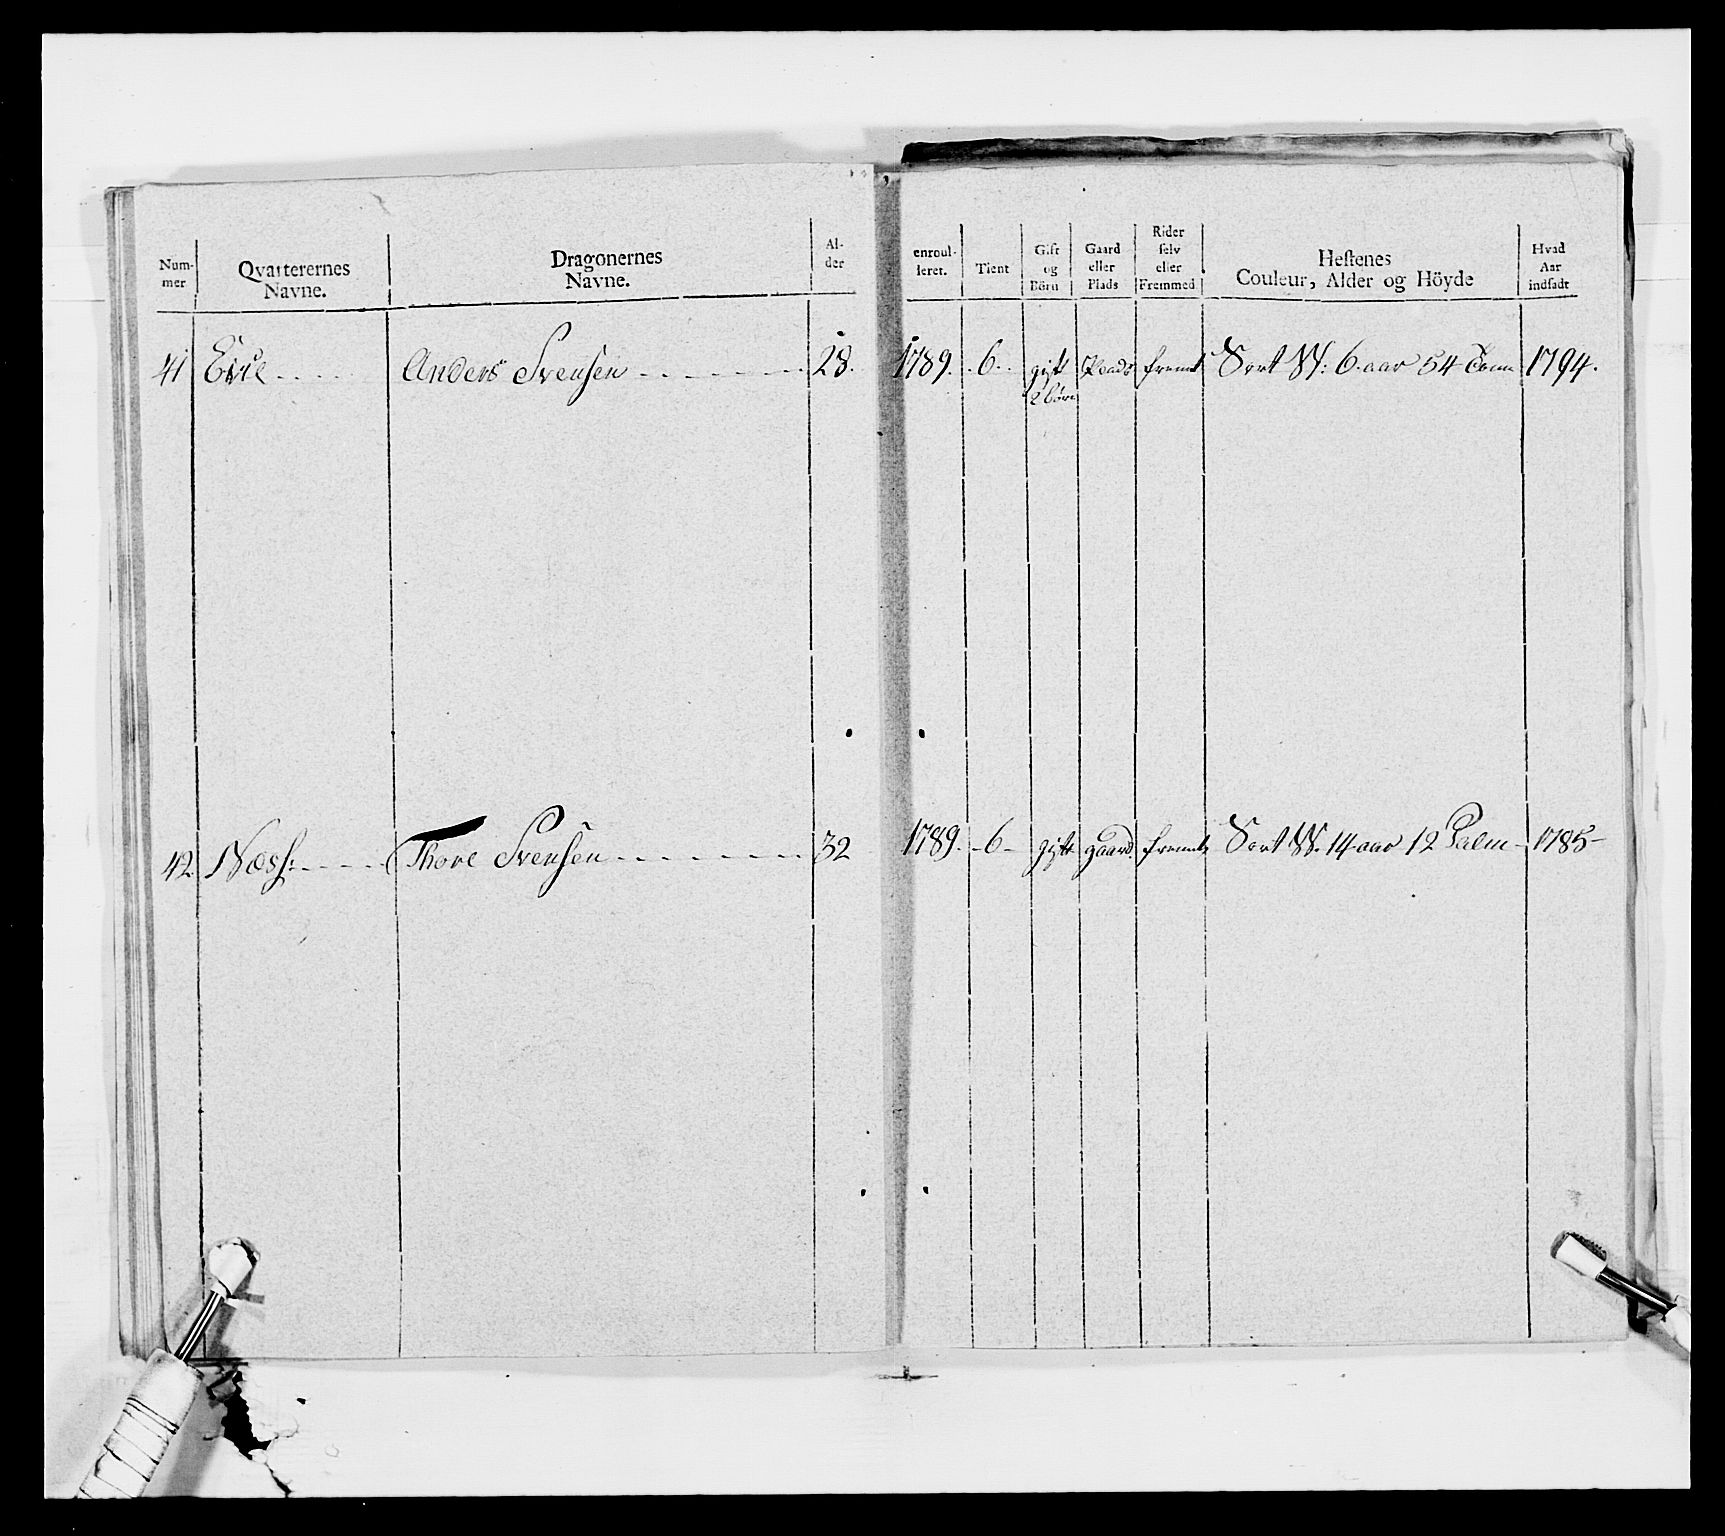 Num-
mer
Qvarterernes
Navne.
Dragonernes
Navne.
Al-
der
enroul-
leret.
Tient
Gift
og
Börn
Gaard
eller
Plads
Rider
selv
eller
Fremmed
Hestenes
Couleur, Alder og Höyde
Hvad
Aar
indsadt
41 Evie Anders Svensen 28. 1789. 6. gift Plads fremt Sort W: 6 aar 54 Tom 1794.
2 börn
42 Næss: Thore Svensen 32 1789. 6 gift gaard. fremt Sort W. 14 aar 12 Palm 1785